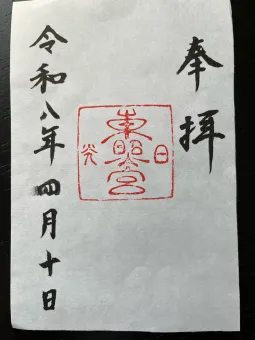 奉拝
日光
東照宮
令和八年四月十日